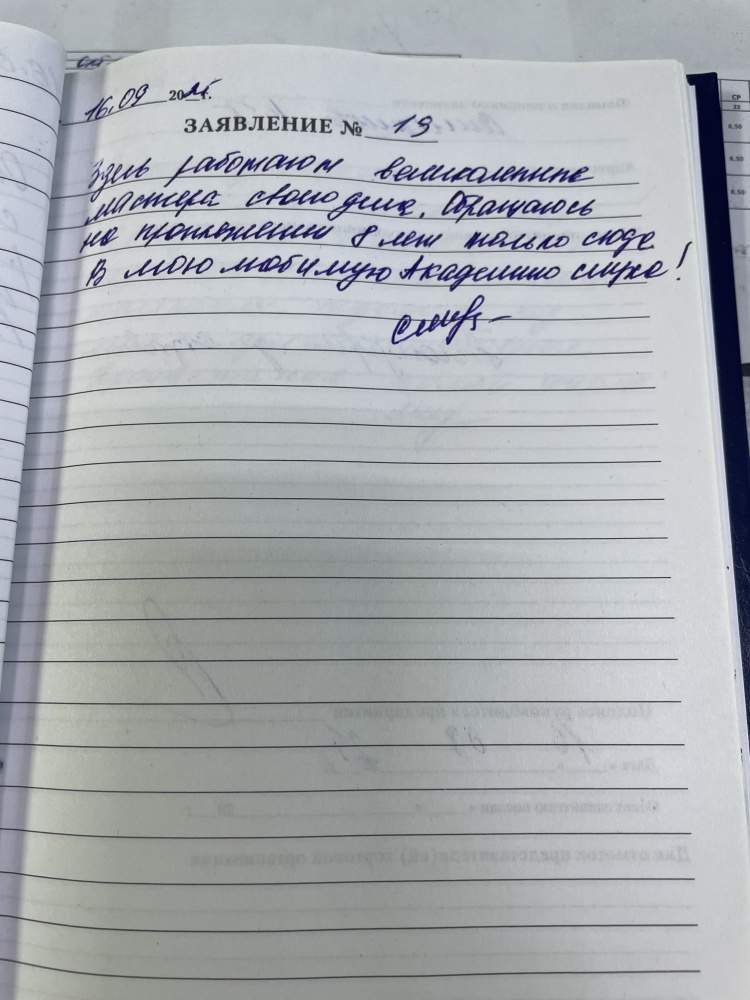 16.09 2025г.
ЗАЯВЛЕНИЕ № 19
Здесь работают великолепные
мастера своего дела. Обращаюсь
на протяжении 8 лет только сюда
В мою любимую Академию слуха!
СР
22
8,50
8,50
8,50